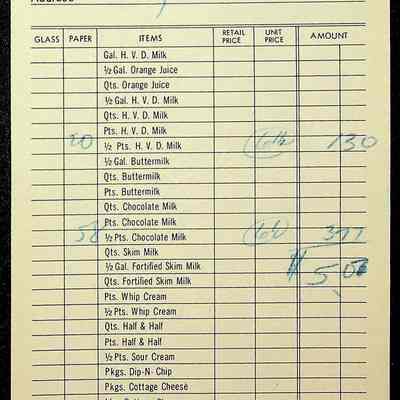 GLASS PAPER ITEMS RETAIL PRICE UNIT PRICE AMOUNT
Gal. H. V. D. Milk
½ Gal. Orange Juice
Qts. Orange Juice
½ Gal. H. V. D. Milk
Qts. H. V. D. Milk
Pts. H. V. D. Milk
20 ½ Pts. H. V. D. Milk 130
½ Gal. Buttermilk
Qts. Buttermilk
Pts. Buttermilk
Qts. Chocolate Milk
Pts. Chocolate Milk
58 ½ Pts. Chocolate Milk 377
Qts. Skim Milk
½ Gal. Fortified Skim Milk
Qts. Fortified Skim Milk
Pts. Whip Cream
½ Pts. Whip Cream
Qts. Half & Half
Pts. Half & Half
½ Pts. Sour Cream
Pkgs. Dip-N-Chip
Pkgs. Cottage Cheese